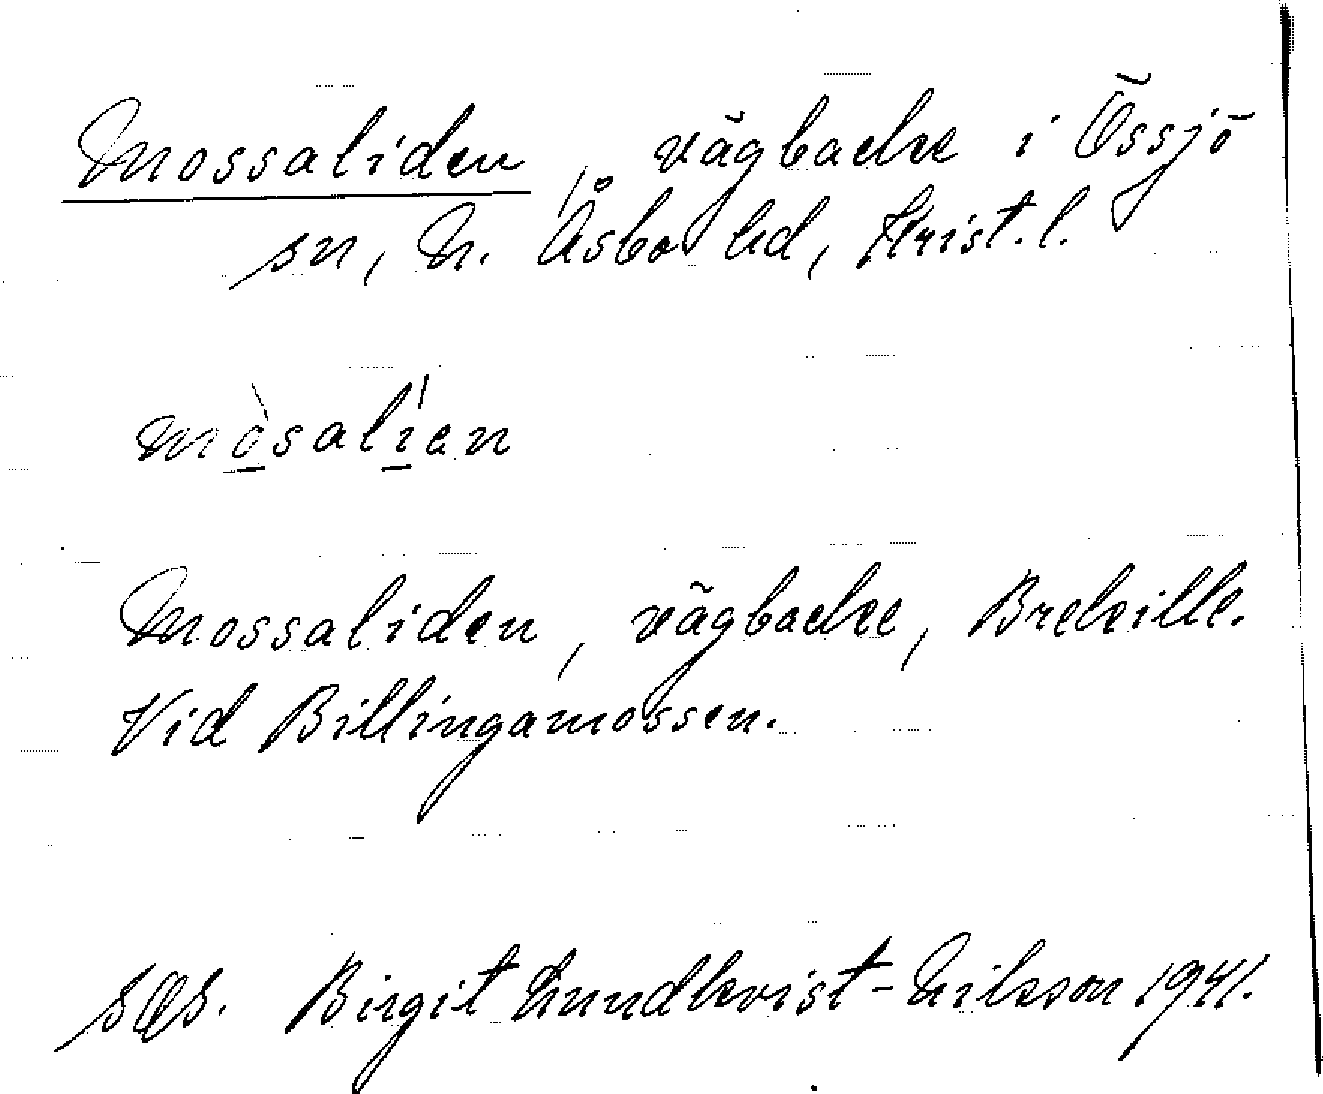 Mossaliden, vägbacke i Össjö
sn, N. Åsbo hd, Krist. l.
mòsalíen
Mossaliden, vägbacke, Brekille.
Vid Billingamossen.
sqs. Birgit Lundkvist-Nilsson 1941.